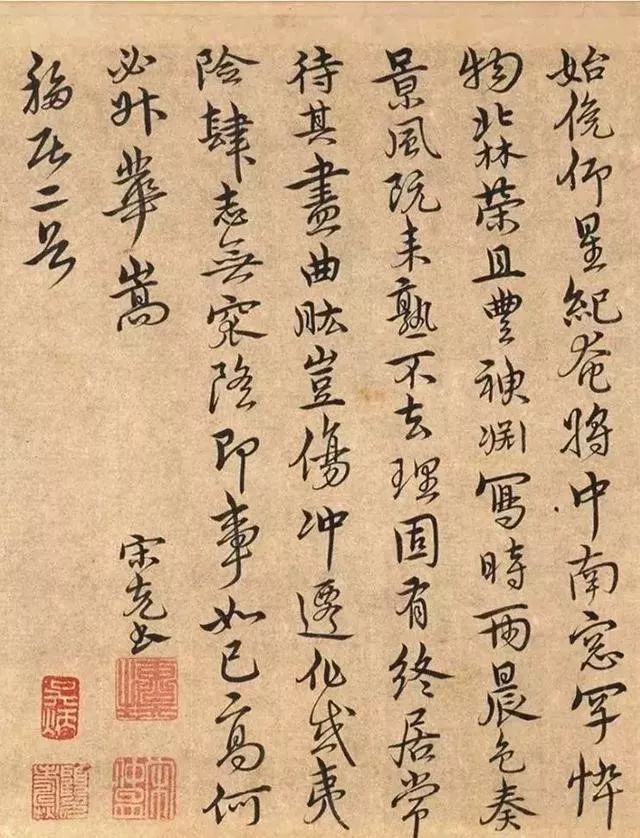 始俛仰星紀奄將中南窓罕悴
物北林荣且豊神渊寫時雨晨色奏
景風既来熟不去理固有終居常
待其盡曲肱豈傷冲遷化或夷
險肆志無窊隆即事如已高何
必升華嵩
宋克书
移居二首